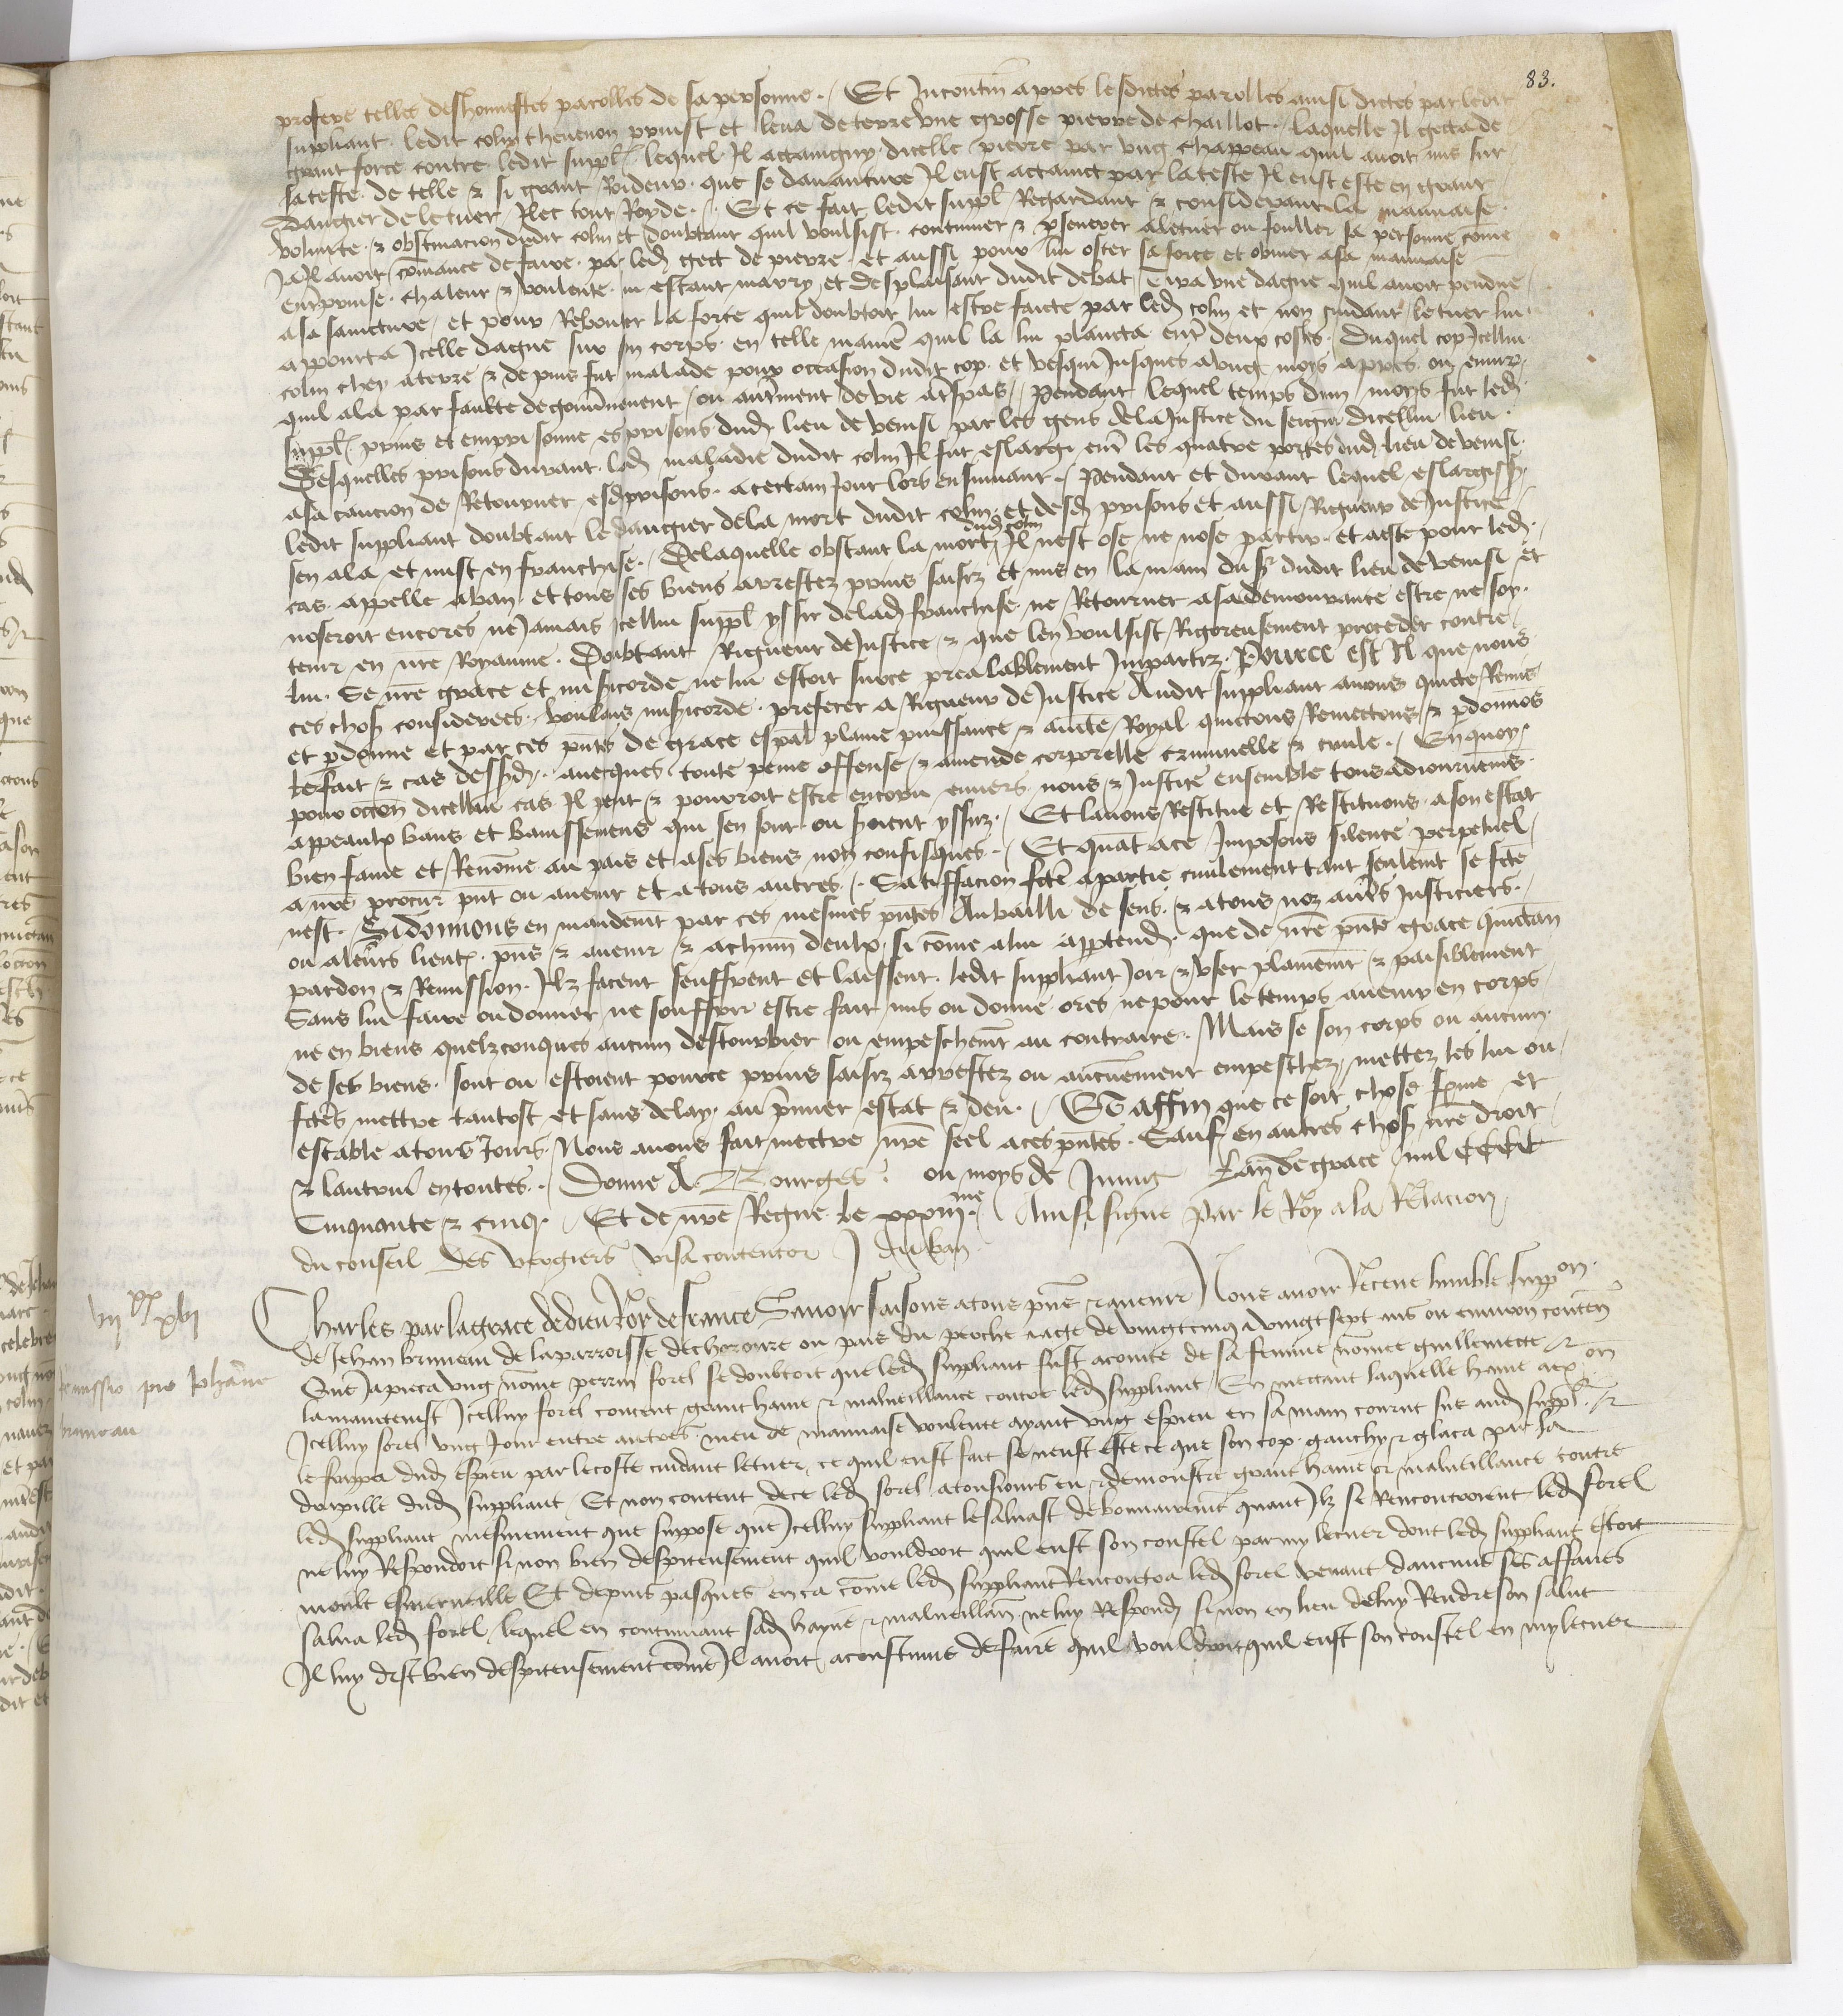 83.
profere telles deshonnestes parolles de sa personne. Et Incontin apres lesdictes parolles ainsi dictes par ledit
suppliant ledit colin thevenon prinst et leva de terre une grosse pierre de chaillot. laquelle Il gecta de
grant force contre ledit suppl lequel Il actaingny dicelle pierre par ung chappeau quil avoit mis sur
sa teste. de telle & si grant Roideur. que se davanture Il eust actainct par la teste Il eust este en grant
dangier de le tuer Illec tout Royde. Et ce fait ledit suppl Regardant & considerant la mauvaise
volunte. & obstinacion dudit colin et doubtant quil voulsist. continuer & pseverer a le tuer ou fouller sa personne come
Ja Il avoit comance de faire. par led gect de pierre. et aussi pour lui oster sa force et obvier a sa mauvaise
entreprinse. chaleur & voulente. lui estant marry et desplaisant dudit debat Tira une dague quil avoit pendue
a sa saincture. et pour Rebouter la force quil doubtoit lui estre faicte par led colin et non cuidant le tuer lui
appourta Icelle dague sur son corps. en telle maniere quil la lui plancta entr deux costes. duquel cop Icellui
colin chey a terre & depuis fut malade pour occasion dudit cop. et vesqui Jusques a ung moys apres ou environ
quil ala par faulte de gouvernement ou autrment de vie a trspas. Pendant lequel temps dun moys fut led
suppl prins et emprisonne es prisons dud lieu de venisi par les gens de la Justice du seigneur dicellui lieu.
Desquelles prisons durant lad maladie dudit colin Il fut eslargi entr les quatre portes dud lieu de venisi
a sa caucion de Retourner esd prisons. a certain jour lors ensuivant. Pendant et durant lequel eslargissmt
ledit suppliant doubtant le dangier de la mort dudit colin. et desd prisons et aussi Rigueur de Justice
sen ala et mist en franchise. De laquelle obstant la mort dud colin Il nest ose ne nose partir. et a este pour led
cas appelle a ban. et tous ses biens arrestez prins saisiz et mis en la main du sr dudit lieu de venisi et
noseroit encores ne Jamais Icellui suppl yssir de lad franchise. ne Retourner a sa demourance estre ne soy
tenir en nre Royaume. Doubtant Rigueur de Justice. & que len voulsist Rigoreusement proceder contre
lui. Se nre grace et misericorde ne lui estoit surce prealablement Impartiz. Pource est Il que nous
ces choss considerees. voulans misericorde. preferer a Rigueur de Justice Audit suppliant avons quicte Remis
et pdonne et par ces pntes de grace espal plaine puissance & aucte Royal quictons Remectons & pdonnos
le fait & cas dessusd. avecques toute peine offense & amende corporelle criminelle & civile. En quoy
pour occon dicellui cas Il peut & pourroit estre encoru envers nous & Justice ensemble tous adiournemens
appeaulx bans et bannissemens qui sen sont ou seroient yssuz. Et lavons Restitue et Restituons. a son estat
bien fame et Renomme au pais et a ses biens non confisques. Et quant a ce Imposons silence perpetuel
a nre procur pnt ou avenir et a tous autres. Satiffacion fcte a partie civilement tant seulemt se fcte
nest. Si donnons en mandemt par ces mesmes pntes Au bailli de sens. & a tous noz autrs Justiciers
ou a leurs lieux. pns & avenir & a chacun deulx. si come a lui appartiendra. que de nre pnte grace quictan
pardon & Remission. Ilz facent seuffrent et laissent. ledit suppliant Joir & user plainemt & paisiblement
Sans lui faire ou donner ne souffrir estre fait mis ou donne ores ne pour le temps avenir en corps
ne en biens quelzconques aucun destourbier ou empeschemt au contraire. Mais se son corps ou aucun
de ses biens. sont ou estoient pource prins saisiz arrestez ou aucunement empeschez. mettez les lui ou
fctes mettre tantost et sans delay. au prmier estat & deu. Et affin que ce soit chose ferme et
estable a tous Jours. Nous avons fait mectre nre seel a ces pntes. Sauf en autres choss nre droit
& lautruy en toutes. Donne A Bourges. ou moys de Juing Lan de grace mil CCCC
Cinquante & cinq. Et de nre Regne le xxxiiime. Ainsi signe Par le Roy a la Relacion
du conseil des vergiers visa contentor J duban
vii xx xvi
Remissio pro Johanne
bruneau
Charles par la grace de dieu Roy de france Savoir faisons a tous pns & avenir Nous avoir Receue humble suppon
de Jehan bruneau de la parroisse de chocoire ou pais du perche aage de vingt cinq a vingt sept ans ou environ conten
Que Ja pieca ung nome perrin sorel se doubtoit que led suppliant fust acointe de sa femme nomee guillemecte & on
la maintenist Icelluy sorel conceut grant haine & malveillance contre led suppliant En mectant laquelle haine a ex
Icelluy sorel ung Jour entre autres. meu de mauvaise voulente ayant ung espieu en sa main courut sus aud suppl &
le frappa dud espieu par le coste cuidant le tuer, ce quil eust fait se neust este ce que son cop gauchy & glaca par la
dud suppliant Et non content de ce led sorel a tousiours eu & demonstre grant haine & malveillance contre
led suppliant mesmement que suppose que Icelluy suppliant le saluast debonnairemt quant Ilz se Rencontroient led sorel
ne luy Respondoit sinon bien despiteusement quil vouldroit quil eust son coustel parmy le cuer dont led suppliant estoit
moult esmerveille Et depuis pasques en ca come led suppliant Rencontra led sorel venant daucuns ses affaires
salua led sorel lequel en continuant sad hayne & malveillan ne luy Respond sinon en lieu de luy Rendre son salut
Il luy dist bien despiteusement come Il avoit acoustume de faire quil vouldroit quil eust son coustel en my le cuer